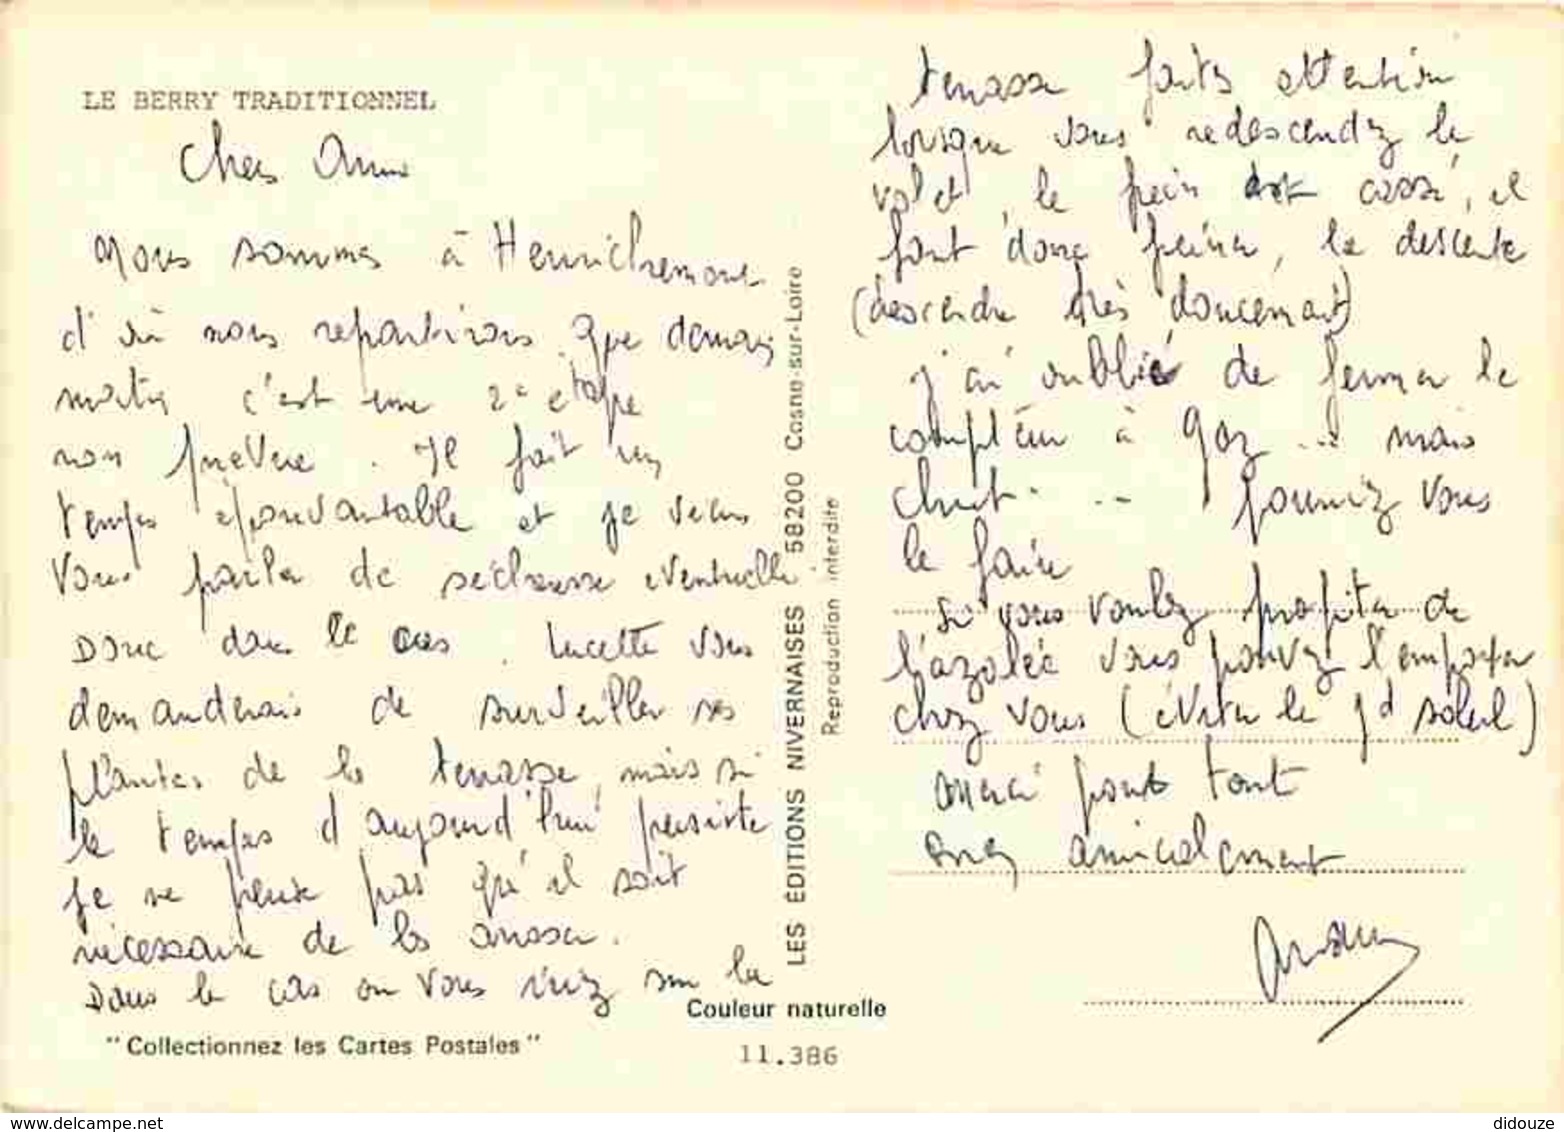 LE BERRY TRADITIONNEL
Chers Amis
Nous sommes à Henrichemont
d'où nous repartirons que demain
matin c'est une 2e étape
non prévue. Il fait un
temps épouvantable et je viens
vous parler de sécheresse éventuelle
Donc dans le cas Lucette vous
demanderais de surveiller ses
plantes de la terrasse, mais si
le temps d'aujourd'hui persiste
je ne pense pas qu'il soit
nécessaire de les arroser.
Dans le cas ou vous iriez sur la
"Collectionnez les Cartes Postales"
LES ÉDITIONS NIVERNAISES 58200 Cosne-sur-Loire
Reproduction interdite
Couleur naturelle
11.386
terrasse faites attention
lorsque vous redescendez le
volet, le frein est cassé, il
faut donc freiner, la descente
(descendre très doucement)
J'ai oublié de fermer le
compteur à gaz ... mais
chut .... pourriez vous
le faire
Si vous voulez profiter de
l'azalée vous pouvez l'emporter
chez vous (éviter le gd soleil)
Merci pour tout
amicalement
didouze